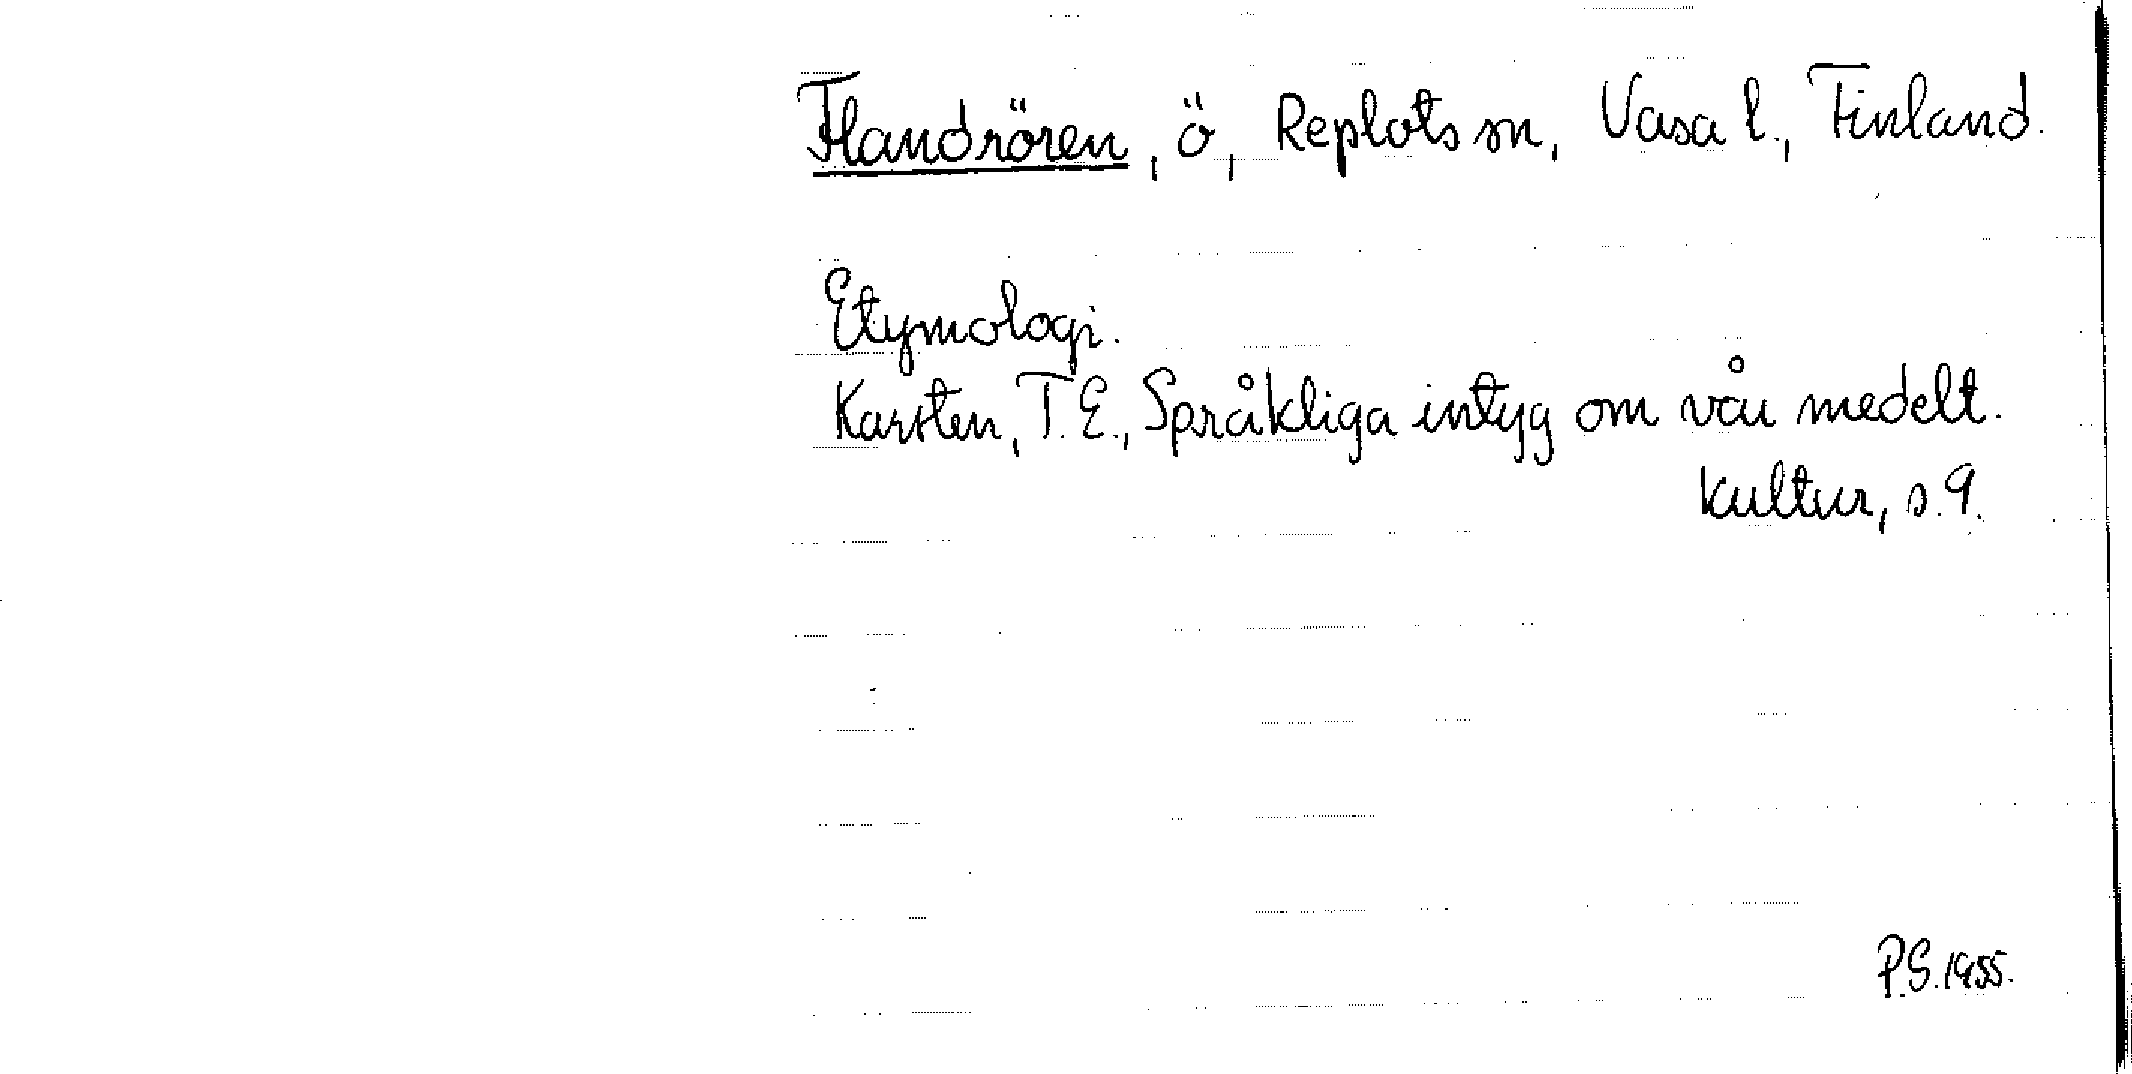 Flandrören, ö, Replots sn, Vasa l., Finland.
Etymologi.
Karsten, T.E., Språkliga intyg om vår medelt.
kultur, s.9.
P.S.1955.